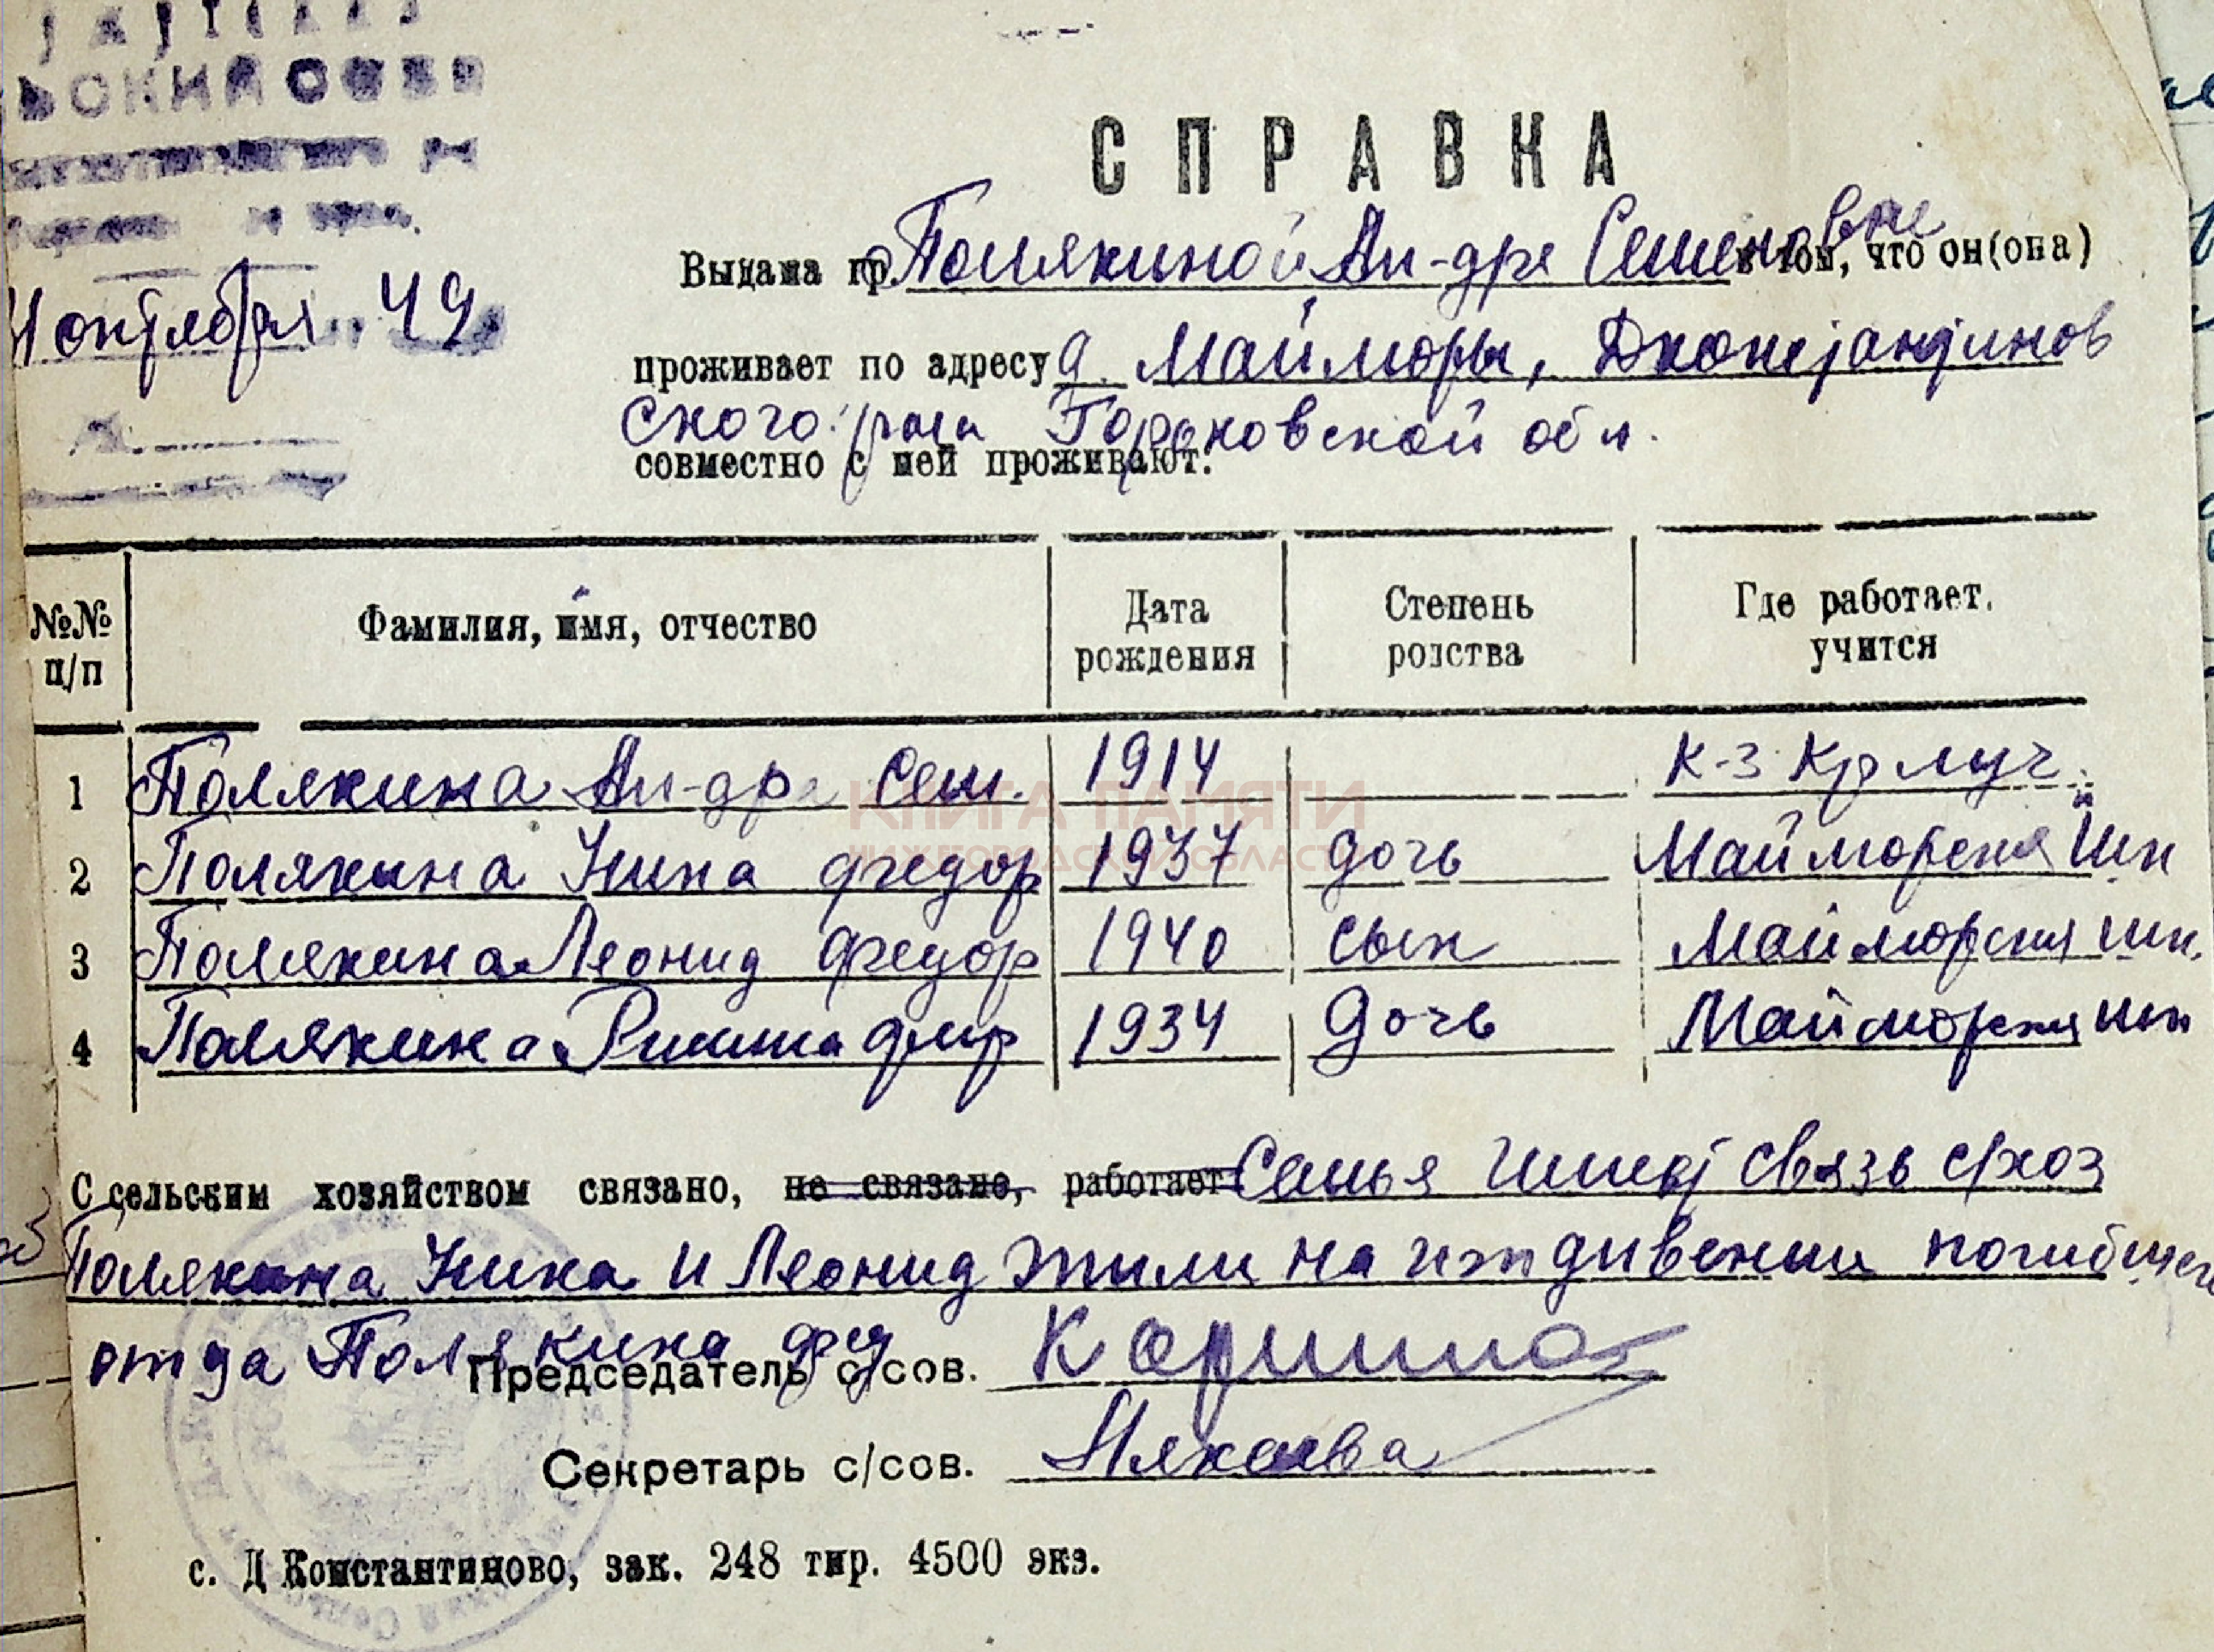 СПРАВКА
Выдана гр. Полякиной Ан-дре Семеновне в том, что он(она)
октября 49
проживает по адресу д. Майморы, Дконстантинов
ского р-на Горьковской обл.
совместно с ней проживают:
№№ п/п Фамилия, имя, отчество Дата рождения Степень родства Где работает, учится
1 Полякина Ан-дра Сем. 1914 к-з Кр луч
2 Полякина Нина Федор 1937 дочь Майморская шк
3 Полякина Леонид Федор 1940 сын Майморская шк.
4 Полякина Римма 1934 дочь Майморская шк
КНИГА ПАМЯТИ
НИЖЕГОРОДСКОЙ ОБЛАСТИ
С сельским хозяйством связано, не связано, работает Семья имеет связь с/хоз
Полякина Нина и Леонид жили на иждивении погибшего
отца Полякина Фед
Председатель с/сов.
Секретарь с/сов.
с. Д Константиново, зак. 248 тир. 4500 экз.